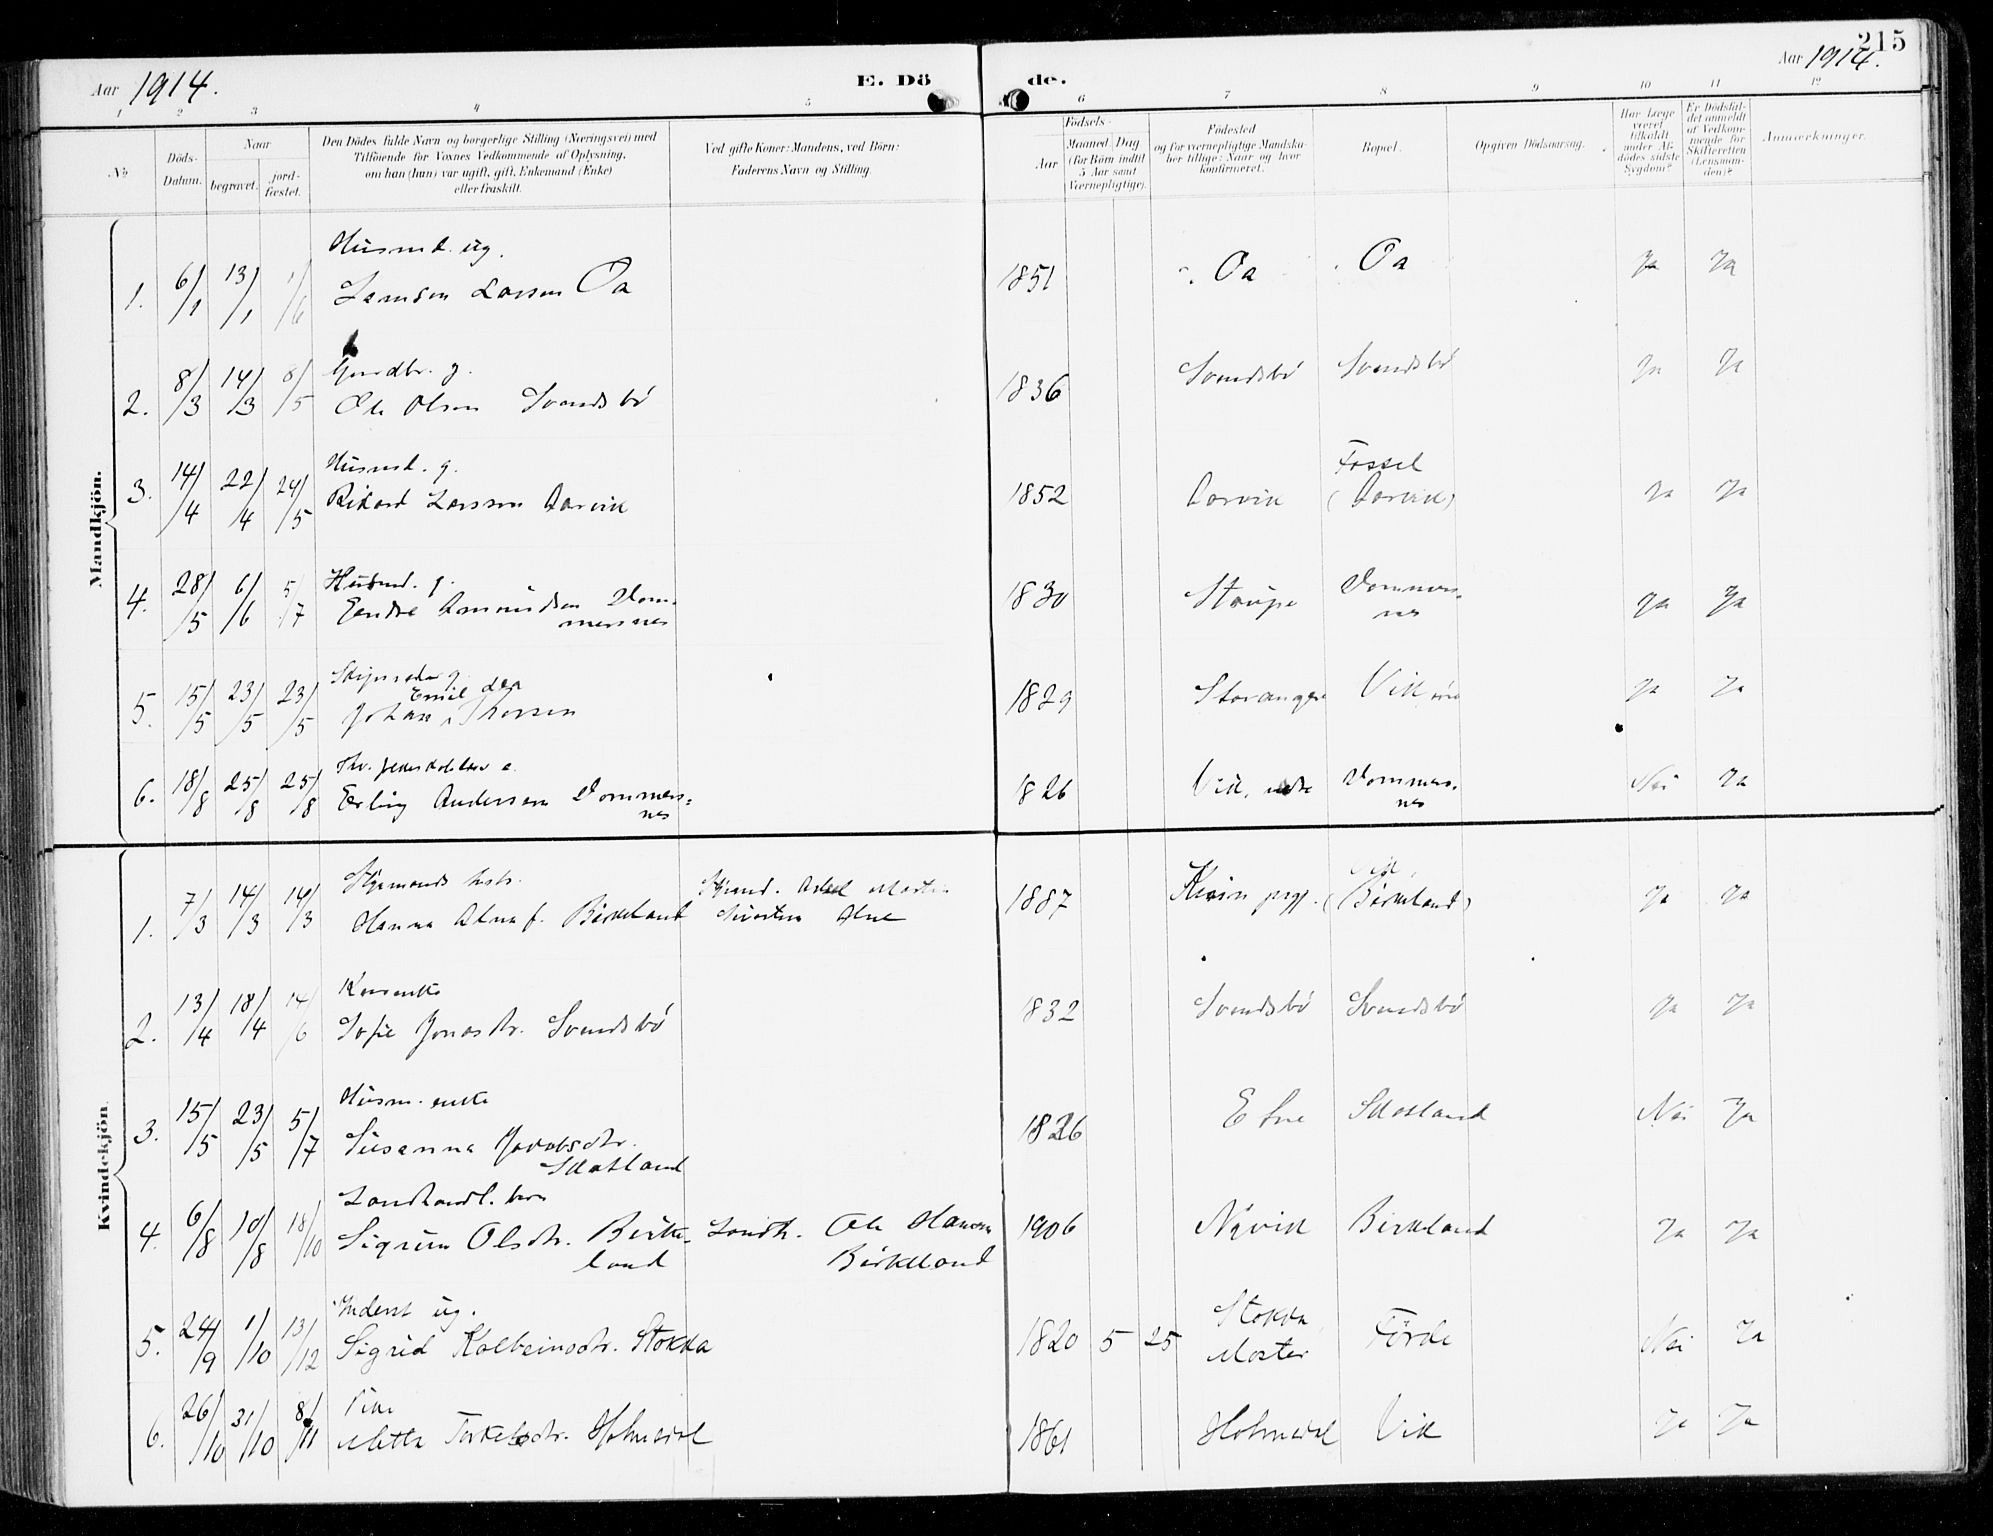 Aar 1914.
E. Döde.
Aar 1914.
215
1 2 3 4 5 6 7 8 9 10 11 12
No
Döds-Datum.
Naar
begravet.
jord-fæstet.
Den Dödes fulde Navn og borgerlige Stilling (Næringsvei) med
Tilföiende for Voxnes Vedkommende af Oplysning,
om han (hun) var ugift, gift, Enkemand (Enke)
eller fraskilt.
Ved gifte Koner: Mandens, ved Börn:
Faderens Navn og Stilling.
Födsels-
Aar
Maaned
Dag
(for Börn indtil
5 Aar samt
Værnepligtige).
Födested
og for værnepligtige Mandska-
ber tillige: Naar og hvor
konfirmeret.
Bopæl.
Opgiven Dödsaarsag.
Har Læge
været
tilkaldt
under Af-
dödes sidste
Sygdom?
Er Dödsfal-
det anmeldt
af Vedkom-
mende for
Skifteretten
(Lensman-
den)?
Anmærkninger.
Mandkjön.
Husmd. ug.
1. 6/1 13/1 1/6 Samson Larsen Oa 1851 Oa Oa Ja Ja
Gaardbr. g.
2. 8/3 14/3 8/5 Ole Olsen Svendsbö 1836 Svendsbö Svendsbö Ja Ja
Husmd. g.
3. 14/4 22/4 24/5 Rikard Larsen Aarvik 1852 Aarvik Fossel (Aarvik) Ja Ja
Husmd. g.
4. 28/5 6/6 5/7 Endre Amundsen Vommersnes 1830 Staupe Vommersnes Ja Ja
5. 15/5 23/5 23/5 Johan Emil Thorsen 1829 Stavanger Vik Ja Ja
6. 18/8 25/8 25/8 Erling Andersen Vommersnes 1826 Vik, Vommersnes Nei Ja
Kvindekjön.
1. 7/3 14/3 14/3 Hanna f. Birkeland 1887 (Birkeland) Ja Ja
2. 13/4 18/4 14/6 Sofie Jonasdtr. Svendsbö 1832 Svendsbö Svendsbö Ja Ja
Husm. enke
3. 15/5 23/5 5/7 Susanna Jakobsdtr. Skatland 1826 Etne Skatland Nei Ja
Landhandl. barn
4. 6/8 10/8 18/10 Sigrun Olsdtr. Birkeland Landh. Ole Hansen Birkeland 1906 Nævik Birkeland Ja Ja
Inderst ug.
5. 24/9 1/10 13/12 Sigrid Kolbeinsdtr. Stokka 1820 5 25 Stokka, Moster Förde Nei Ja
Pike
6. 26/10 31/10 8/11 Metta Torkelsdtr. Holmedal 1861 Holmedal Vik Ja Ja